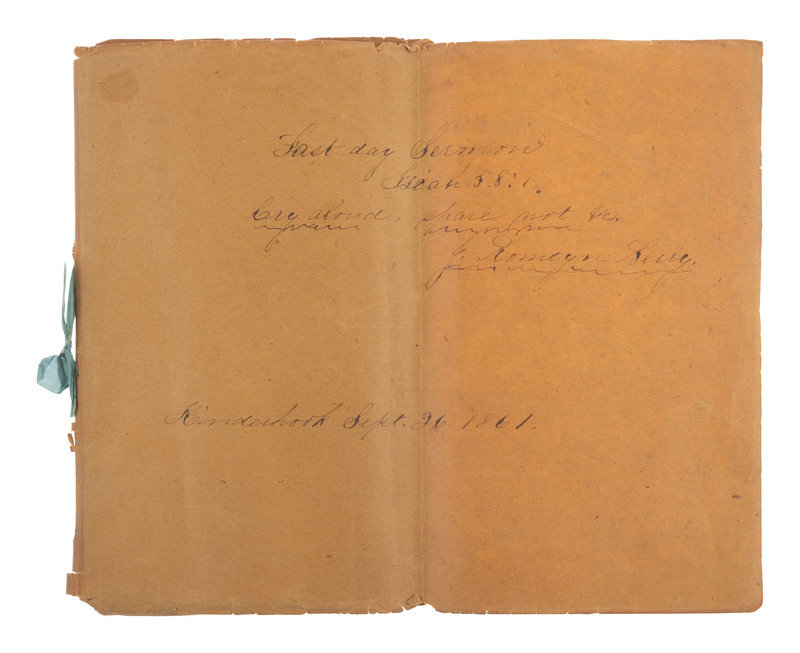 Fast day Sermon
Isiah 58:1.
Cry aloud, spare not &c.
J. Romeyn Berry.
Kinderhook Sept. 26. 1861.